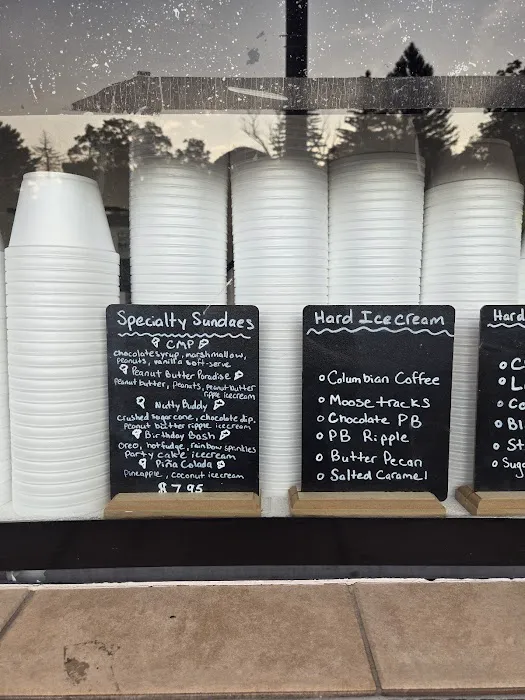 Specialty Sundaes
CMP
chocolate syrup, marshmallow,
peanuts, vanilla soft-serve
Peanut Butter Paradise
peanut butter, peanuts, peanut butter
ripple icecream
Nutty Buddy
crushed sugar cone, chocolate dip,
peanut butter ripple icecream
Birthday Bash
oreo, hot fudge, rainbow sprinkles
party cake icecream
Piña Colada
pineapple, coconut icecream
$7.95
Hard Icecream
Columbian Coffee
Moose tracks
Chocolate PB
PB Ripple
Butter Pecan
Salted Caramel
Hard